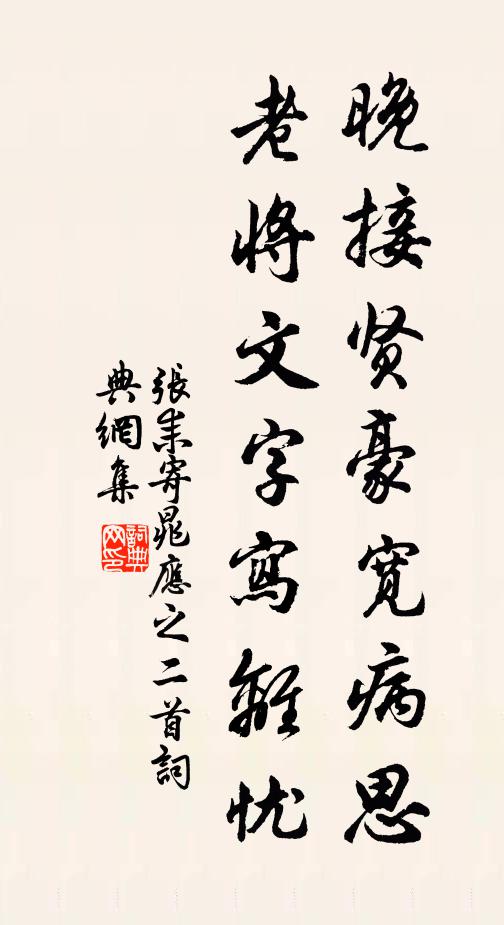 晚接贤豪宽病思
老将文字寫離忧
張耒寄晁應之二首詞
典網集
詞典
网印